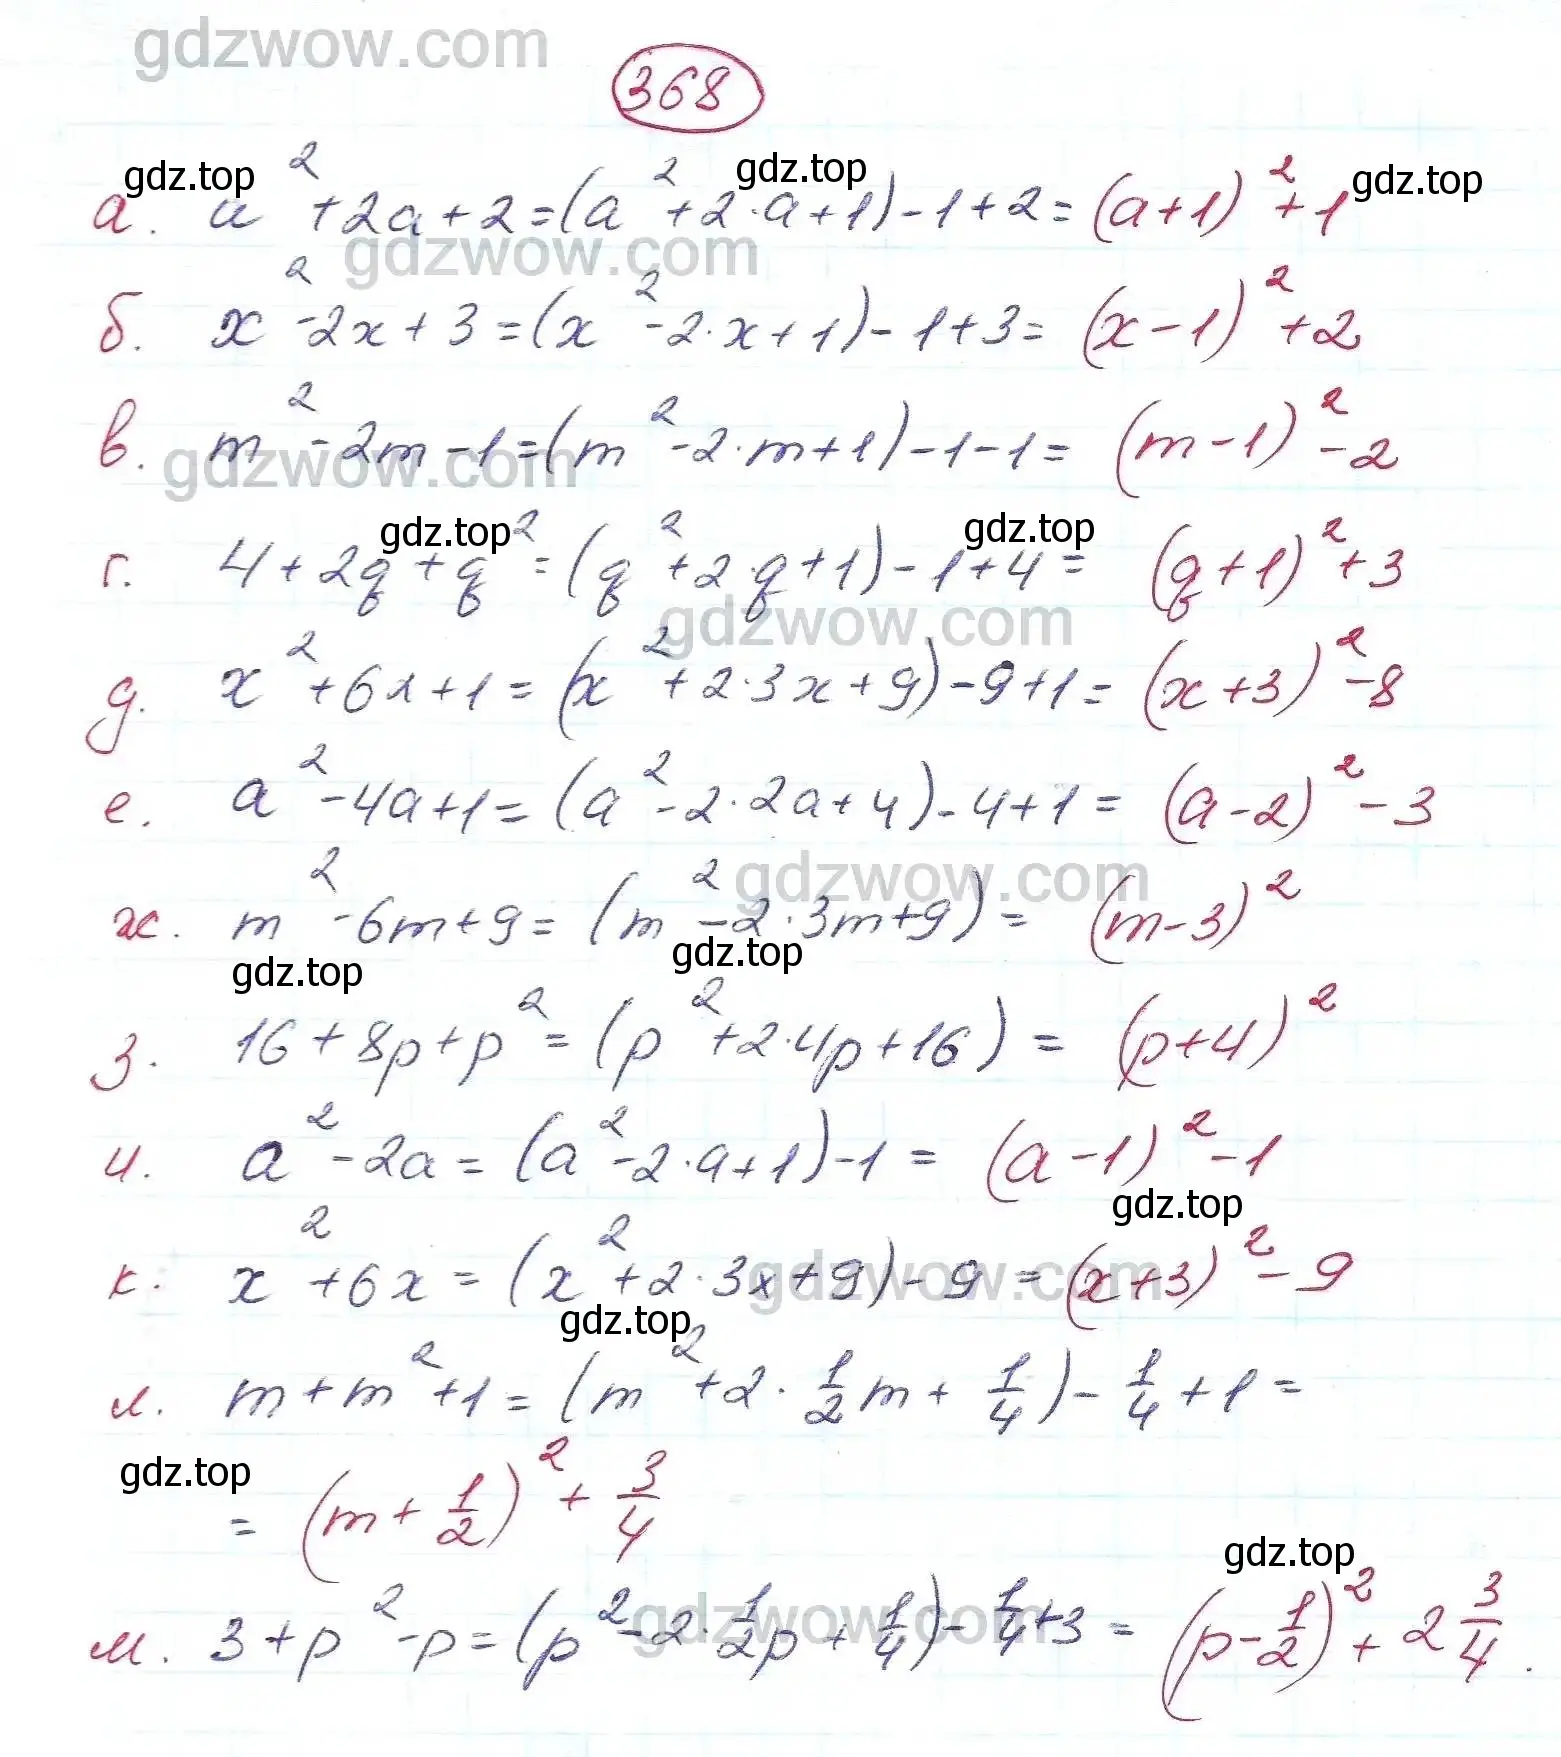 gdzwow.com
368
gdz.top gdz.top gdz.top
а. a² + 2a + 2 = (a² + 2·a + 1) - 1 + 2 = (a+1)² + 1
gdzwow.com
б. x² - 2x + 3 = (x² - 2·x + 1) - 1 + 3 = (x - 1)² + 2
в. m² - 2m - 1 = (m² - 2·m + 1) - 1 - 1 = (m - 1)² - 2
gdzwow.com
gdz.top gdz.top
г. 4 + 2q + q² = (q² + 2·q + 1) - 1 + 4 = (q + 1)² + 3
gdzwow.com
д. x² + 6x + 1 = (x² + 2·3x + 9) - 9 + 1 = (x + 3)² - 8
е. a² - 4a + 1 = (a² - 2·2a + 4) - 4 + 1 = (a - 2)² - 3
gdzwow.com
ж. m² - 6m + 9 = (m² - 2·3m + 9) = (m - 3)²
gdz.top gdz.top
з. 16 + 8p + p² = (p² + 2·4p + 16) = (p + 4)²
и. a² - 2a = (a² - 2·a + 1) - 1 = (a - 1)² - 1
gdz.top
к. x² + 6x = (x² + 2·3x + 9) - 9 = (x + 3)² - 9
gdzwow.com
gdz.top
л. m + m² + 1 = (m² + 2·1/2m + 1/4) - 1/4 + 1 =
gdz.top
= (m + 1/2)² + 3/4
gdz.top
gdzwow.com
м. 3 + p² - p = (p² - 2·1/2p + 1/4) - 1/4 + 3 = (p - 1/2)² + 2 3/4.